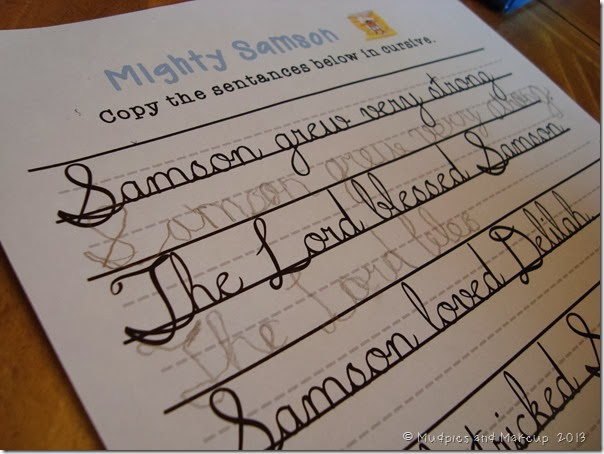 Mighty Samson
Copy the sentences below in cursive.
Samson grew very strong
Samson grew very strong
The Lord blessed Samson.
The Lord bles
Samson loved Delilah.
tricked S
© Mudpies and Makeup 2013